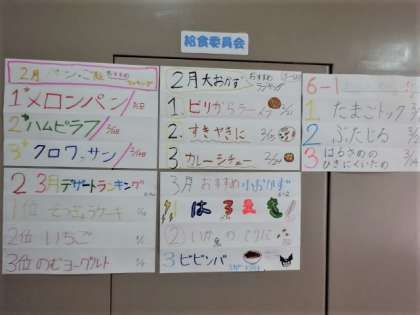 給食委員会
2月 パン・ごはん おすすめランキング
1* メロンパン
2* ハムピラフ
3* クロワッサン
2月大おかず おすすめランキング
1. ピリからラーメン
2. すきやきに
3 カレーシチュー
6-1
1 たまごトック
2 ぶたじる
3 はるさめの
ひきにくいため
2 3月 デザートランキング
1位 ケーキ
2位 いちご
3位 のむヨーグルト
3月 おすすめ 小おかず
1 はるまき
(2) いか
3 ビビンバ